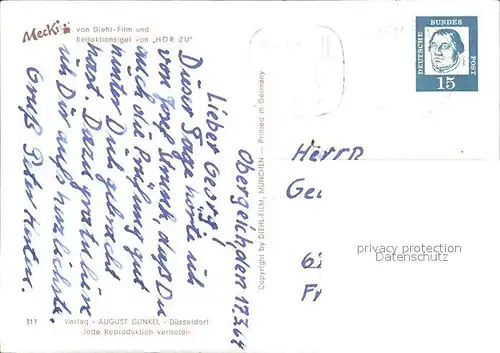 Mecki
von Diehl-Film und
Redaktionsigel von „HÖR ZU"
DEUTSCHE BUNDES POST
15
Obergeich, den 17.3.64
Lieber Georg!
Dieser Tage hörte ich
von Josef, daß Du
auch die Prüfung gut
hinter Dich gebracht
hast. Dazu gratuliere
ich Dir auf's herzlichste.
Gruß Peter
Copyright by DIEHL-FILM, MÜNCHEN — Printed in Germany
Herrn
Ge
6
Fr
privacy protection
Datenschutz
311
Verlag - AUGUST GUNKEL - Düsseldorf
Jede Reproduktion verboten